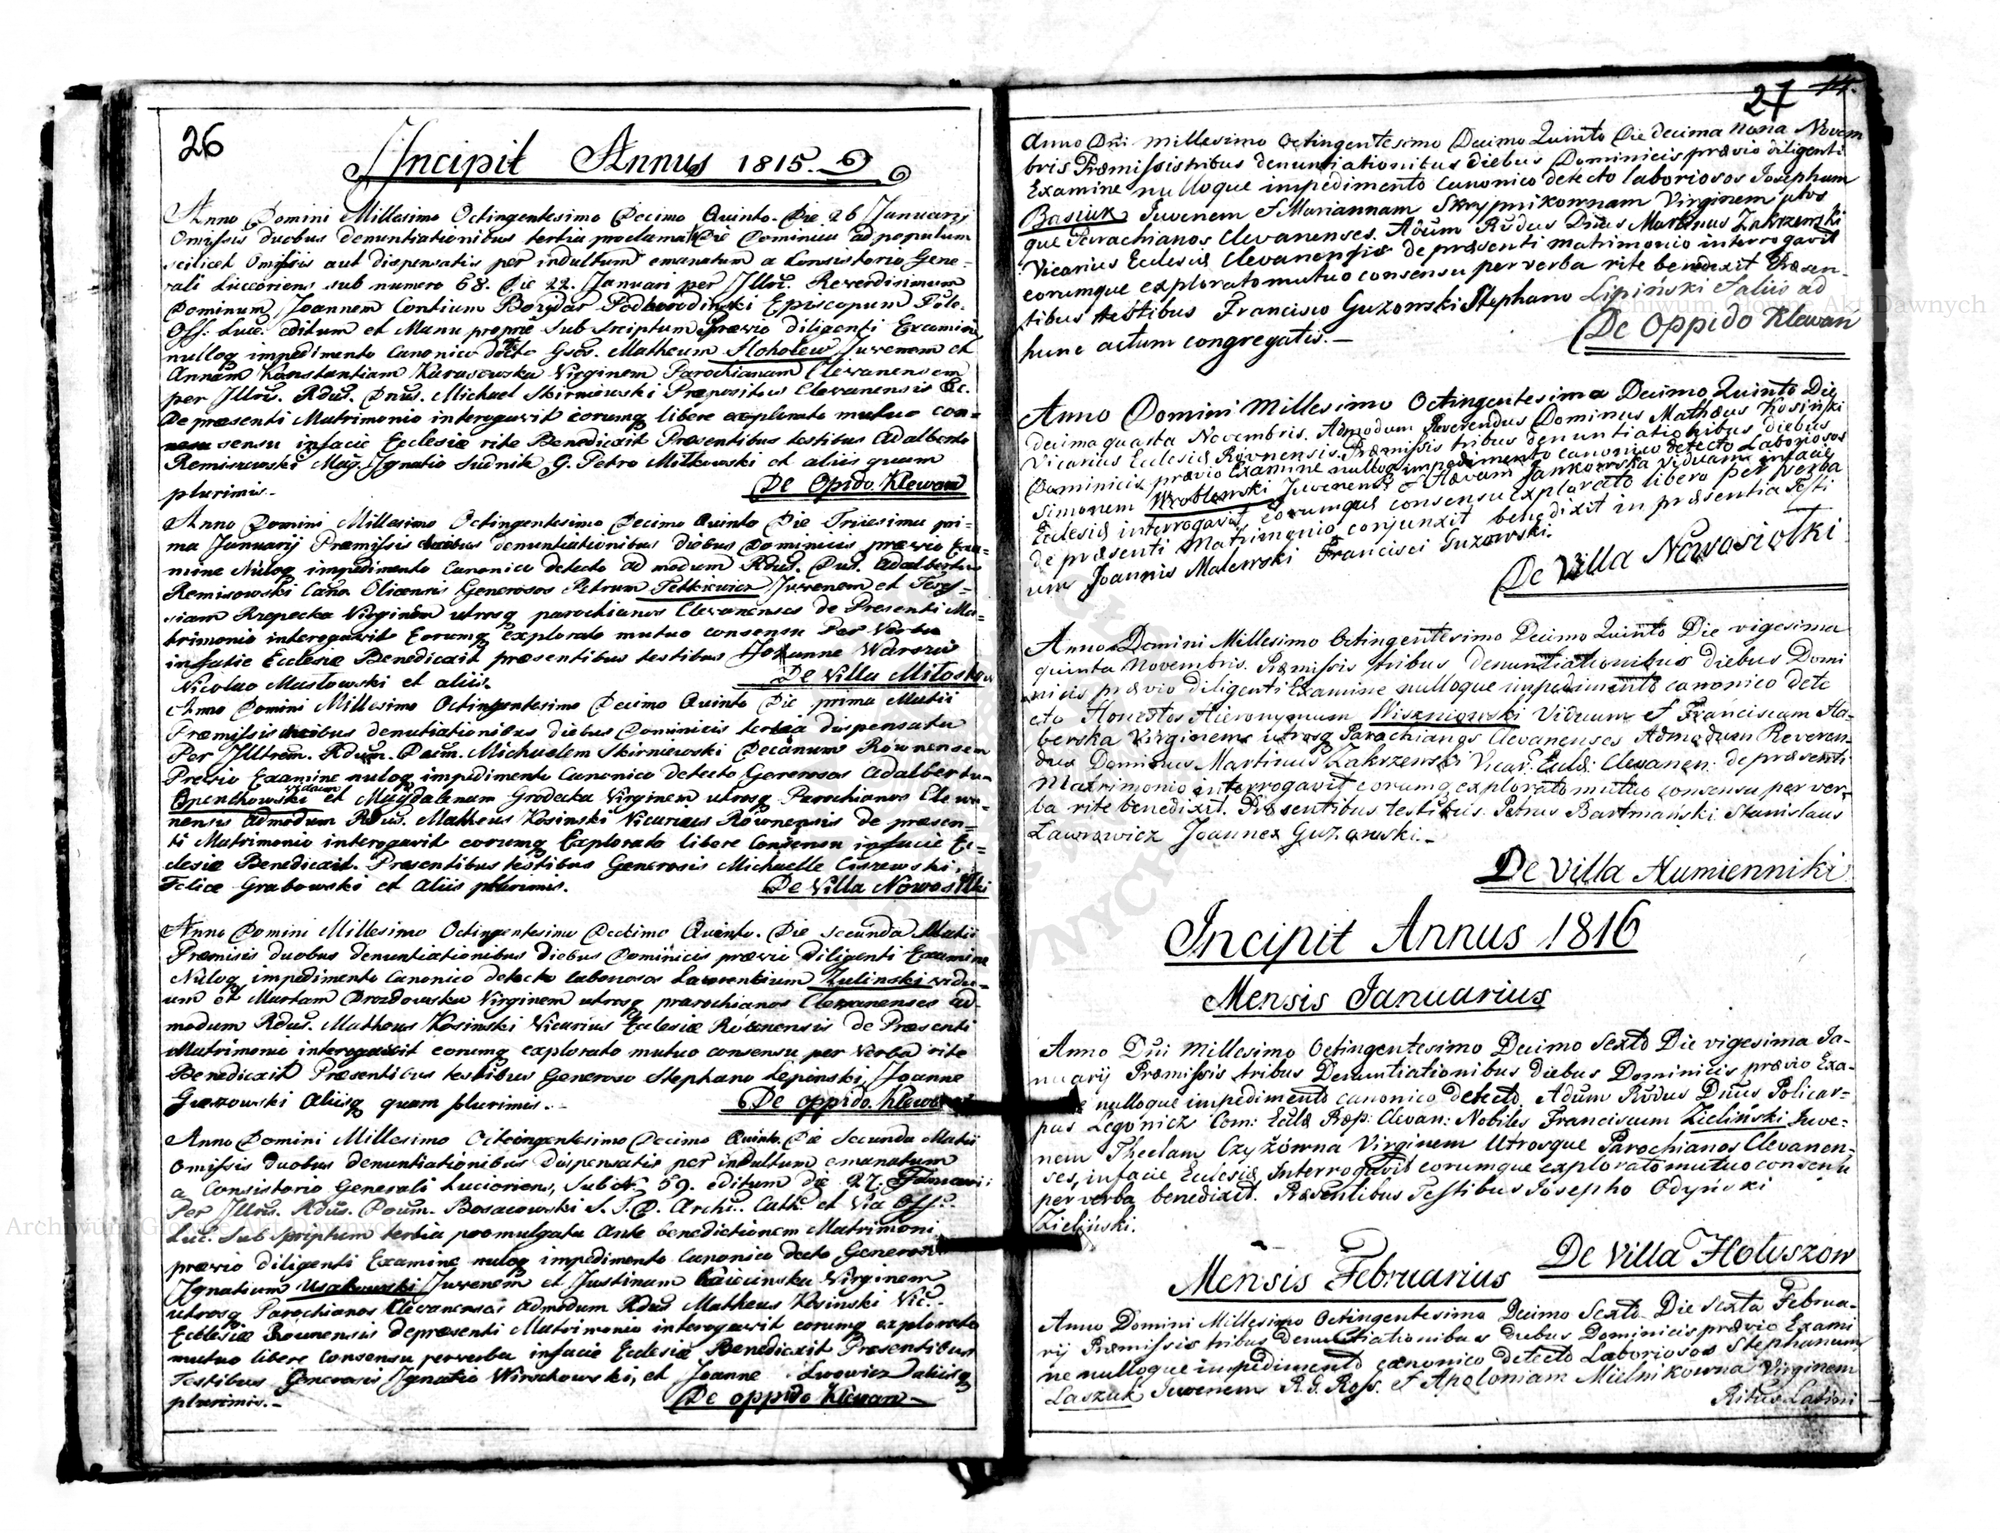 26
Incipit Annus 1815.
Anno Domini Millesimo Octingentesimo Decimo Quinto. Die 26 Januarij
Omissis duobus denuntiationibus tertia proclamata Die Dominica ad populum
scilicet Omissis aut dispensatis per indultum emanatum a Consistorio Gene-
rali Luceoriens sub numero 68. Die 22. Januari per Illor. Reverdisimum
Dominum Joannem Contium Bozydar Podhorodinski Episcopum
Off: Luc. editum et Manu proprie Sub Scriptum Prævio diligenti Examine
nulloq impedimento Canonico detto Gsos. Matheum Hoholew Juvenem et
Annam Konstantiam Karasowska Virginem Parochianam Clevanensem
per Illus. Rdus. Dnus. Michael Skirniewski Præpositus Clevanensis Ec.
De præsenti Matrimonio interogavit eorumq libere explorato mutuo con-
sensu infacie Ecclesiæ rite Benedixit Præsentibus testibus Adalberto
Remiszowski Mag. Ignatio Sudnik G. Petro Mitkowski et aliis quam
plurimis.-
De Opido. Klewan
Anno Domini Millesimo Octingentesimo Decimo Quinto Die Triiesima pri-
ma Januarij Præmissis duobus denuntiationibus diebus Dominicis prævio Exa-
mine Nuloq impedimento Canonico detecto ad modum Rdus. Dus. Adalbertus
Remisowski Cano. Olicensis Generosos Petrum Petkiewicz Juvenem et Teres-
siam Rzepecka Virginem utrosq parochianos Clevanenses de Presenti Ma-
trimonio interogavit Eorumq explorato mutuo consensu Per Verba
infatie Ecclesiæ Benedixit præsentibus testibus Joanne
Nicolao Maslowski et aliis.
De Villa
Anno Domini Millesimo Octingentesimo Decimo Quinto Die prima Maii
Præmissis duobus denutiationibus diebus Dominicis tertia dispensata
Per Illtrem. Rdum. Dnum. Michaelem Skirniewski Decanum Rownensem
Prævio Examine nuloq impedimento Canonico Detecto Generosos Adalbertum
viduum
Openchowski et Magdalenam Grodecka Virginem utrosq Parochianos Clewa-
nensis admodum Rdus. Matheus Kosinski Vicarius Rownensis de præsen-
ti Matrimonio interogavit eorumq Explorato libere Consensu infacie Ec-
clesiæ Benedixit. Præsentibus testibus Generosis Michaelle Ciszewski,
Felice Grabowski et aliis plurimis.
De Villa Nowosilki
Anno Domini Millesimo Octingentesimo Decimo Quinto. Die secunda Maii
Præmisis duobus denuntiationibus diebus Dominicis prævio diligenti Examine
Nuloq impedimento Canonico detecto laboriosos Laurentium Zulinski vidu-
um et Martam Drozdowska Virginem utrosq parochianos Clewanenses ad-
modum Rdus. Matheus Kosinski Vicarius Ecclesiæ Rownensis De Præsenti
Matrimonio interogavit eorumq explorato mutuo consensu per Verba rite
Benedixit Præsentibus testibus Generoso Stephano Lepinski, Joanne
Guzowski Aliisq quam plurimis.-
De oppido. Klewan
Anno Domini Millesimo Octingentesimo Decimo Quinto. Die Secunda Maii
Omissis duobus denuntiationibus Dispensatis per indultum emanatum
a Consistorio Generali Lucioriens, Sub № 59. editum die 27. Januari:
Per Illus. Rdus. Dnum. Bosacowski S. T. D. Archi. Cath. et Via Off:
Luc. Sub Scriptum tertia promulgata Ante benedictionem Matrimoni
prævio diligenti Examine nuloq impedimento Canonico decto Generos
Ignatium Usakowski Juvenem et Justinam Virginem
utrosq Parochianos Klevanenses admodum Rdus Matheus Kosinski Vic.
Ecclesiæ Rownensis depræsenti Matrimonio interogavit eorumq explorato
mutuo libere Consensu perverba infacie Ecclesiæ Benedixit Præsentibus
Testibus Generosis Ignatio Wirschowski, et Joanne Lwowicz aliisq
plurimis.-
De oppido Klewan
27 14.
Anno Dni Millesimo Octingentesimo Decimo Quinto Die decima nona Novem
bris Præmissis tribus denuntiationibus diebus Dominicis prævio diligenti
Examine nulloque impedimento canonico detecto laboriosos Josephum
Basiuk Juvenem et Mariannam Skrypnikownam Virginem utros
que Parachianos Clevanenses. Adum Rudus Dnus Martinus Zakrzewski
Vicarius Eclesiæ Clevanensis de præsenti matrimonio interrogavit
eorumque explorato mutuo consensu per verba rite benedixit Præsen-
tibus testibus Francisco Guzowski Stephano Lipiński et aliis ad
hunc actum congregatis.-
De Oppido Klewan
Anno Domini Millesimo Octingentesima Decimo Quinto Die
decima quarta Novembris. Admodum Reverendus Dominus Mathæus Kosiński
Vicarius Eclesiæ Rovnensis. Præmissis tribus denuntiationibus diebus
Dominicis prævio Examine nulloq impedimento canonico detecto Laboriosos
Simonem Wroblewski Juvenem et Hævam Jankowska Viduam infacie
Eclesiæ interrogavit, eorumque consensu explorato libero per verba
de præsenti Matrimonio conjunxit benedixit in præsentia Testi
um Joannis Malewski Francisci Guzowski.
De Villa Nowosiołki
Anno Domini Millesimo Octingentesimo Decimo Quinto Die vigesima
quinta Novembris. Præmissis tribus denuntiationibus diebus Domi
nicis prævio diligenti Examine nulloque impedimento canonico dete
cto Honestos Hieronymum Wiszniowski Viduum et Franciscam Ha-
berska Virginem utrosq Parachianos Clevanenses Admodum Reveren-
dus Dominus Martinus Zakrzewski Vicar: Eccls: Clevanen: de præsenti
Matrimonio interrogavit eorumq explorato mutuo consensu per ver-
ba rite benedixit. Præsentibus testibus. Petrus Bartmański Stanislaus
Lawrowicz Joannes Guzowski.-
De Villa Humienniki
Incipit Annus 1816
Mensis Januarius
Anno Dni Millesimo Octingentesimo Decimo Sexto Die vigesima Ja-
nuarij Præmissis tribus Denuntiationibus diebus Dominicis prævio Exa-
nulloque impedimento canonico detecto. Adum Rudus Dnus Policar-
pus Legonicz Com: Ecls Præp: Clevan: Nobiles Franciscum Zieliński Juve-
nem Theclam Czyżówna Virginem Utrosque Parachianos Clevanen-
ses, infacie Eclesiæ Interrogavit eorumque explorato mutuo consensu
per verba benedixit. Præsentibus Testibus Josepho Odyński
Zieliński.
De Villa Hołyszow
Mensis Februarius
Anno Domini Millesimo Octingentesimo Decimo Sexto Die Sexta Februa-
rij Præmissis tribus Denuntiationibus diebus Dominicis prævio Exami
ne nulloque impedimento canonico detecto Laboriosos Stephanum
Laszuk Juvenem R. G. Ross. et Apoloniam Mielnikowna Virginem
Ritus Latini
Archiwum Główne Akt Dawnych
Archiwum Główne Akt Dawnych